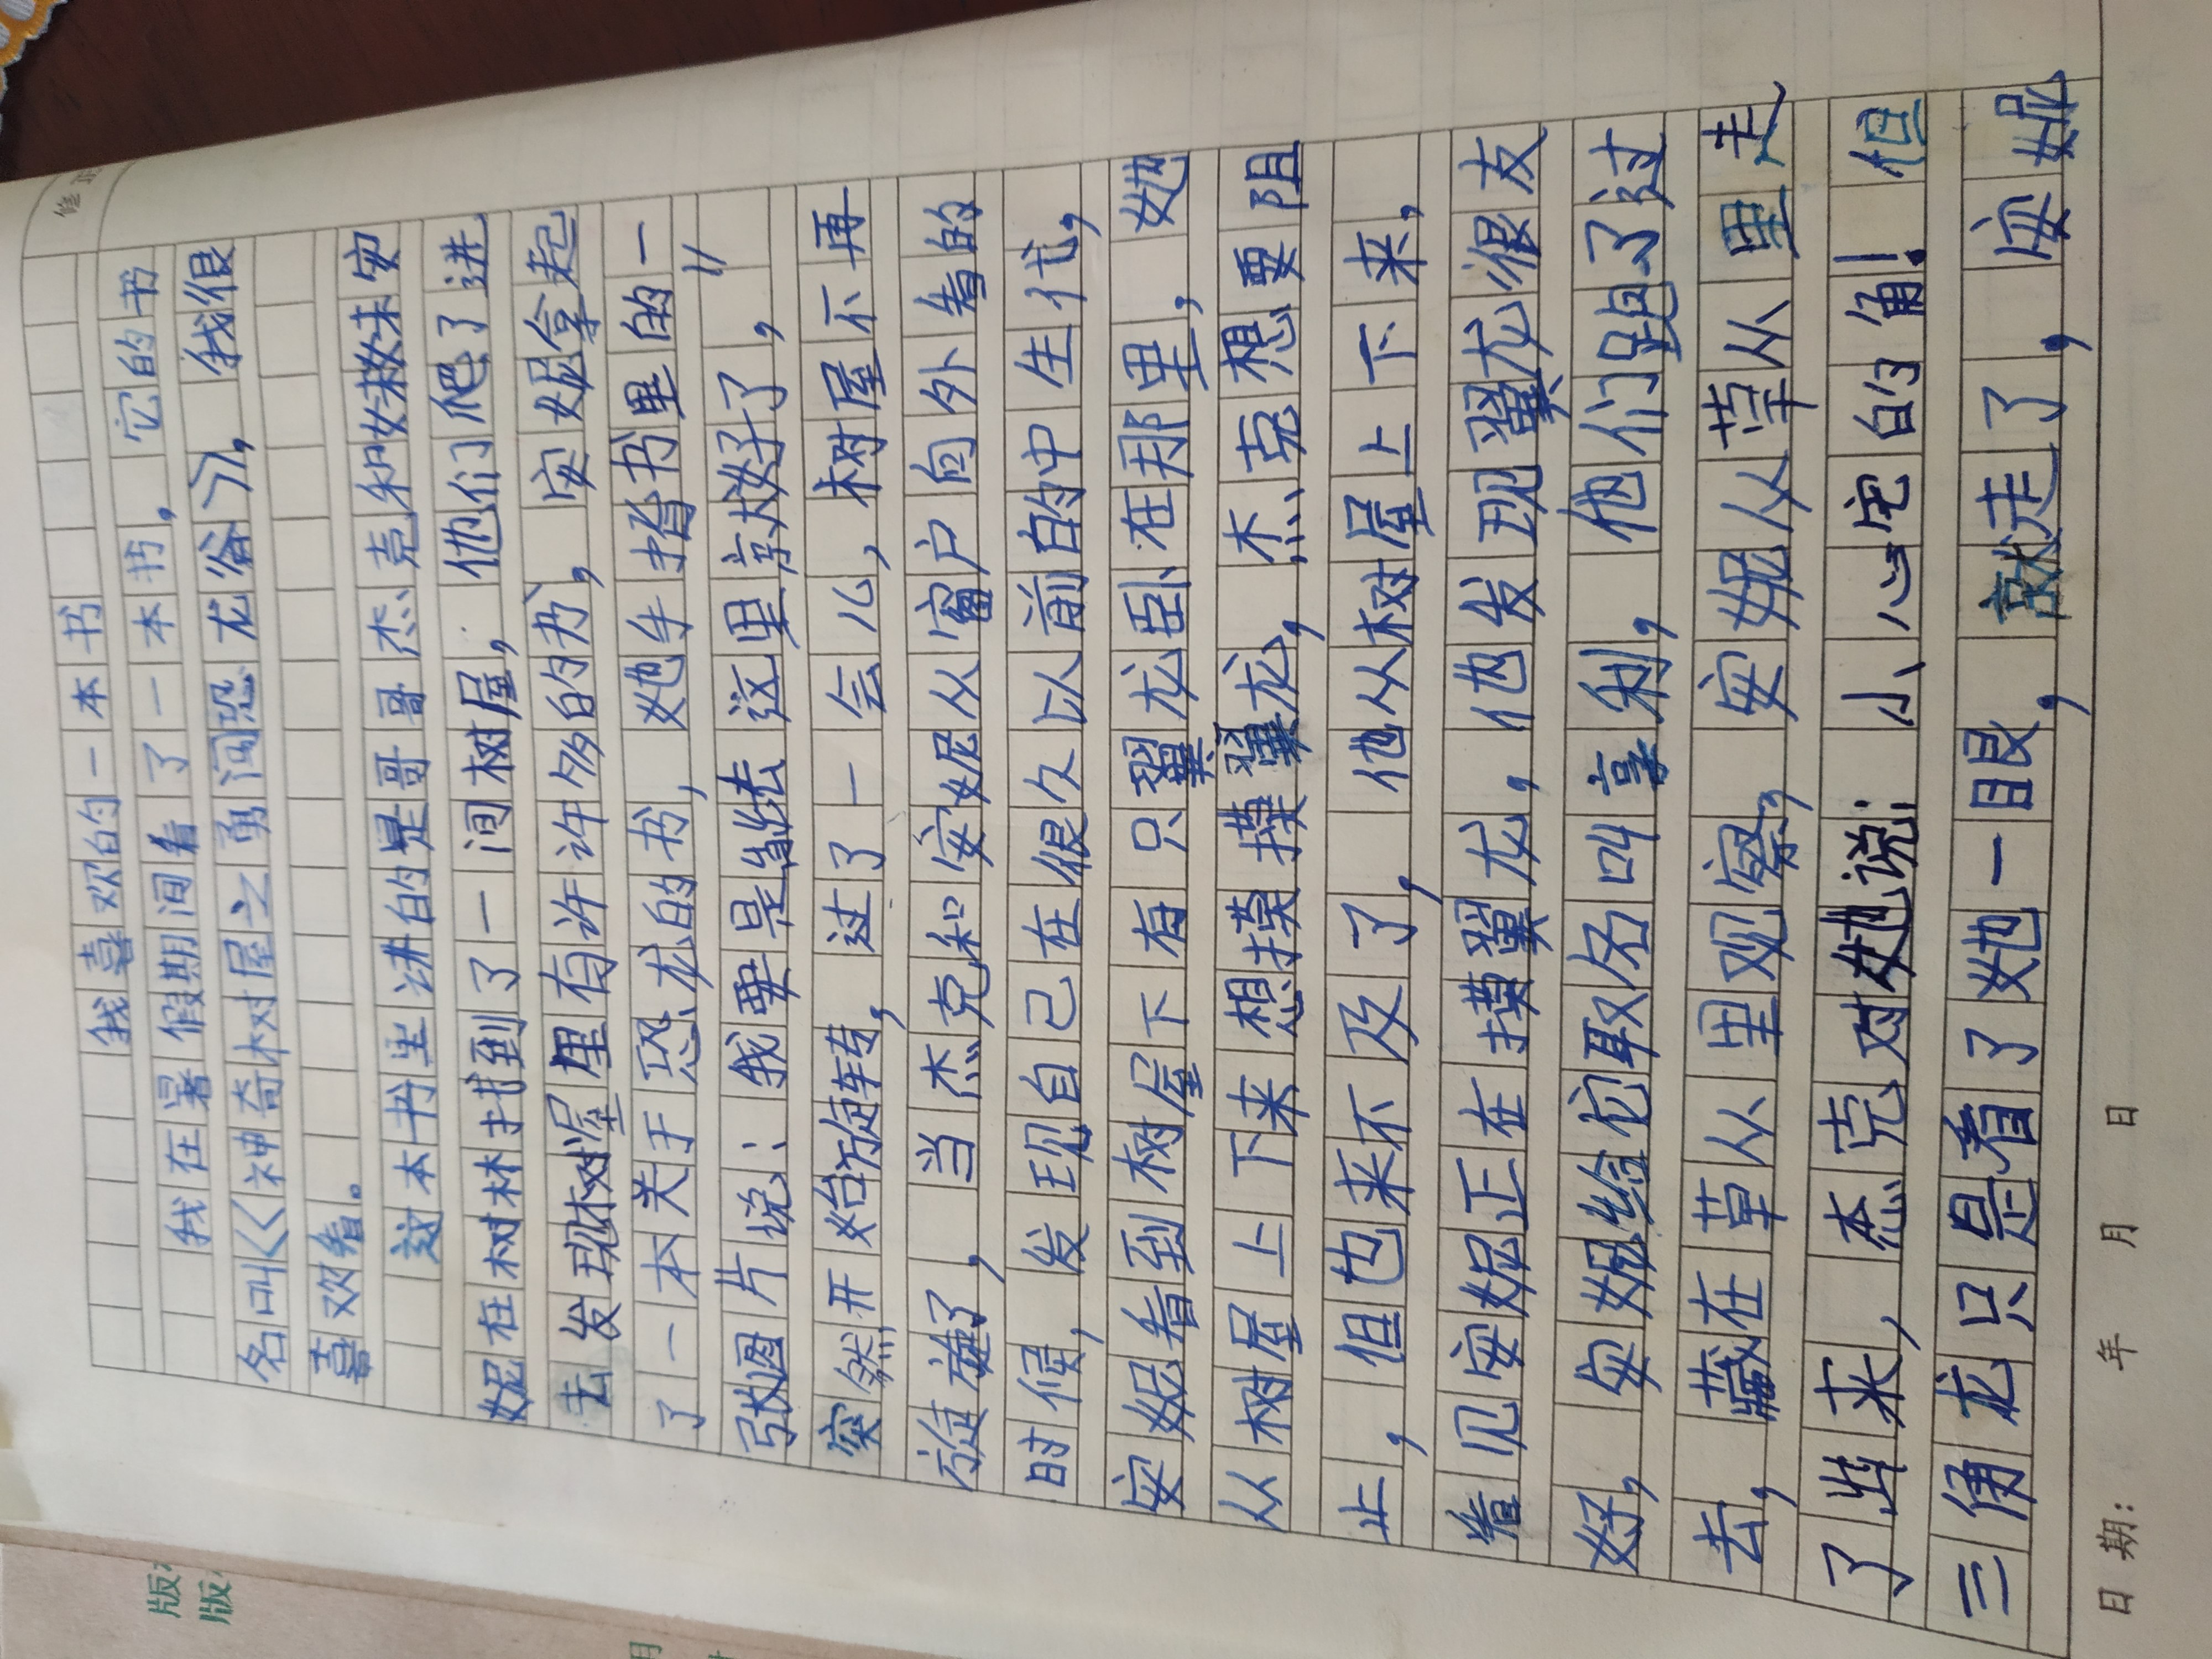 我喜欢的一本书
我在暑假期间看了一本书，它的书
名叫《神奇树屋之勇闯恐龙谷》，我很
喜欢看。
这本书里讲的是哥哥杰克和妹妹安
妮在树林找到了一间树屋，他们爬了进
去发现树屋里有许许多的书，安妮拿起
了一本关于恐龙的书，她手指书里的一
张图片说：我要是能去这里就好了，"
突然开始旋转，过了一会儿，树屋不再
旋旋了，当杰克和安妮从窗户向外看的
时候，发现自己在很久以前的中生代，
安妮看到树屋下有只翼龙卧在那里，她
从树屋上下来想摸摸翼龙，杰克想要阻
止，但也来不及了，他从树屋上下来，
看见安妮正在摸翼龙，他发现翼龙很友
好，安妮给它取名叫亨利，他们跑了过
去，藏在草从里观察，安妮从草从里走
了出来，杰克对她说：小心它的角！但
三角龙只是看了她一眼，就走了，安妮
日期： 年 月 日
修
版
版